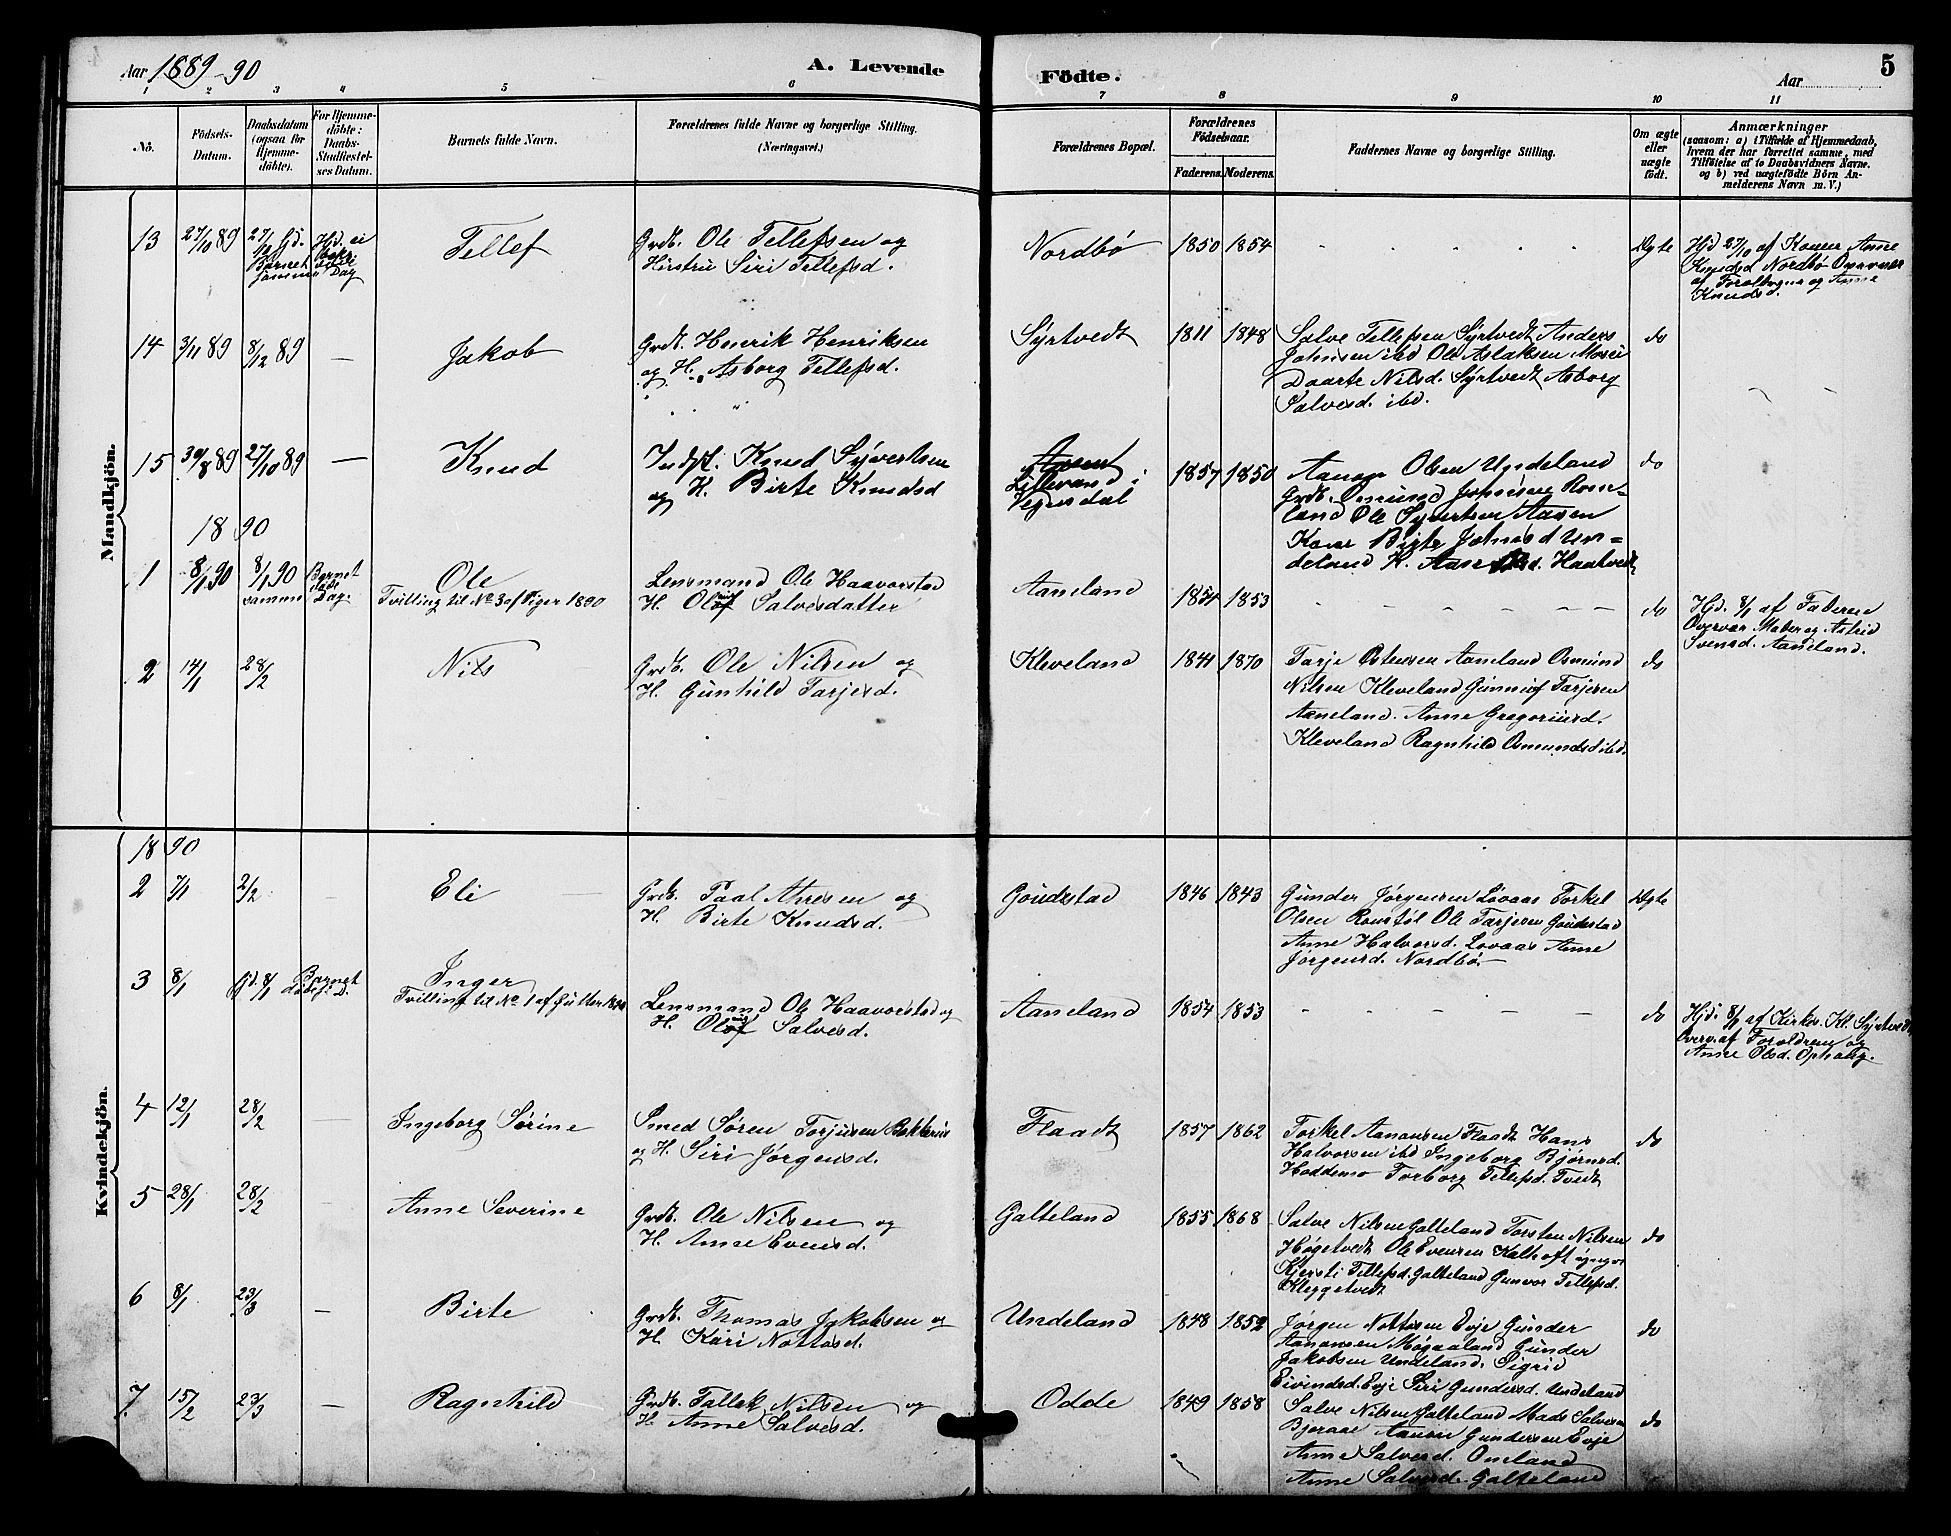 Aar 1889-90 A. Levende Födte. Aar 5
1 2 3 4 5 6 7 8 9 10 11
No. Födsels-Datum. Daabsdatum (ogsaa for Hjemme-döbte). For Hjemme-döbte: Daabs-Stadfæstel-ses Datum. Barnets fulde Navn. Forældrenes fulde Navne og borgerlige Stilling. (Næringsvei.) Forældrenes Bopæl. Forældrenes Födselsaar. Faderens. Moderens. Faddernes Navne og borgerlige Stilling. Om ægte eller uægte født. Anmærkninger (saasom: a) i Tilfælde af Hjemmedaab, hvem der har forrettet samme, med Tilföielse af to Daabsvidners Navne. og b) ved uægtefödte Börn An-melderens Navn m. V.)
Mandkjön.
13 27/10 89 27/10 Hjd. Barnet samme Dag Tellef Grdb. Ole Tellefsen og
Hustru Siri Tellefsd. Nordbø 1850 1854 - - - - - Ægte Hjd 27/10 af Konen Anne
Knudsd Nordbø Overvær
af Forældrene og Anne
Knudsd.
14 3/11 89 8/12 89 — Jakob Grdb. Henrik Henriksen
og H. Asborg Tellefsd. Syrtvedt 1811 1848 Salve Tellefsen Syrtvedt Anders
Johnsen ibd Ole Aslaksen Mosei
Daarte Nilsd. Syrtvedt Asborg
Salvesd. ibd. do
15 30/8 89 27/10 89 — Knud Indst. Knud Syvertsen
og H. Birte Knudsd Lillevand i
Vegusdal 1857 1850 Aanon Olsen Undeland
Grdb. Omund Johnsen Rose-
land Ole Syvertsen Aasen
Kone Birte Johnsd Un-
deland K. Aase Haatvedt do
1890
1 8/1 90 8/1 90 samme Barnet døde Dag. Ole
Tvilling til No 3 af Piger 1890 Lensmand Ole Haavorstad
H. Oluf Salvesdatter Aaneland 1854 1853 - - - - - - do Hjd. 8/1 af Faderen
Overvær Moder og Astrid
Svensd. Aaneland.
2 14/1 28/2 Nils Grdb. Ole Nilsen og
H. Gunhild Tarjesd. Kleveland 1841 1870 Tarje Ostensen Aaneland Osmund
Nilsen Kleveland Gunniuf Tarjesen
Aaneland. Anne Gregoriusd.
Kleveland Ragnhild Osmundsd ibd. do
Kvindekjön.
1890
2 7/1 2/2 Eli Grdb. Paal Ahresen og
H. Birte Knudsd. Goudestad 1846 1843 Gunder Jørgensen Lovaas Torkel
Olsen Ronstøl Ole Tarjesen Goudestad
Anne Halvorsd. Lovaas Anne
Jørgensd. Nordbø. Ægte
3 8/1 Hjd. 8/1 Barnet døde s. D. Inger
Tvilling til No. 1 af Gutter 1890 Lensmand Ole Haavorstad og
H. Oluf Salvesd. Aaneland 1854 1853 - - - - - do Hjd. 8/1 af Kirkes. Kl. Syrtvedt,
Overv. af Forældrene og
Anne Olsd. Ophaug.
4 12/1 28/2 — Ingeborg Sørine Smed Søren Torjusen
og H. Siri Jørgensd. Flaadt 1857 1862 Torkel Aanonsen Flaadt Hans
Halvorsen ibd Ingeborg Bjørnsd.
Hoddemo Torborg Tellefsd. Tvedt do
5 28/1 28/2 — Anne Severine Grdb. Ole Nilsen og
H. Anne Evensd. Galteland 1855 1868 Salve Nilsen Galteland Torsten Nilsen
Høgetvedt Ole Evensen
Kjersti Tellefsd. Galteland Gunvor Tellefsd.
Kleggetvedt do
6 8/1 23/3 — Birte Grdb. Thomas Jakobsen og
H. Kari Nottosd. Undeland 1848 1852 Jørgen Nottosen Evje Gunder
Aanonsen Møgaaland Gunder
Jakobsen Undeland. Sigrid
Eivindsd. Evje Siri Gundersd. Undeland do
7. 15/2 23/3 — Ragnhild Grdb. Tallek Nilsen og
H. Anne Salvesd. Odde 1849 1858 Salve Nilsen Galteland Mads Salvesen
Bjoraae Aanon Gundersen Evje
Anne Salvesd. Oneland
Anne Salvesd. Galteland do